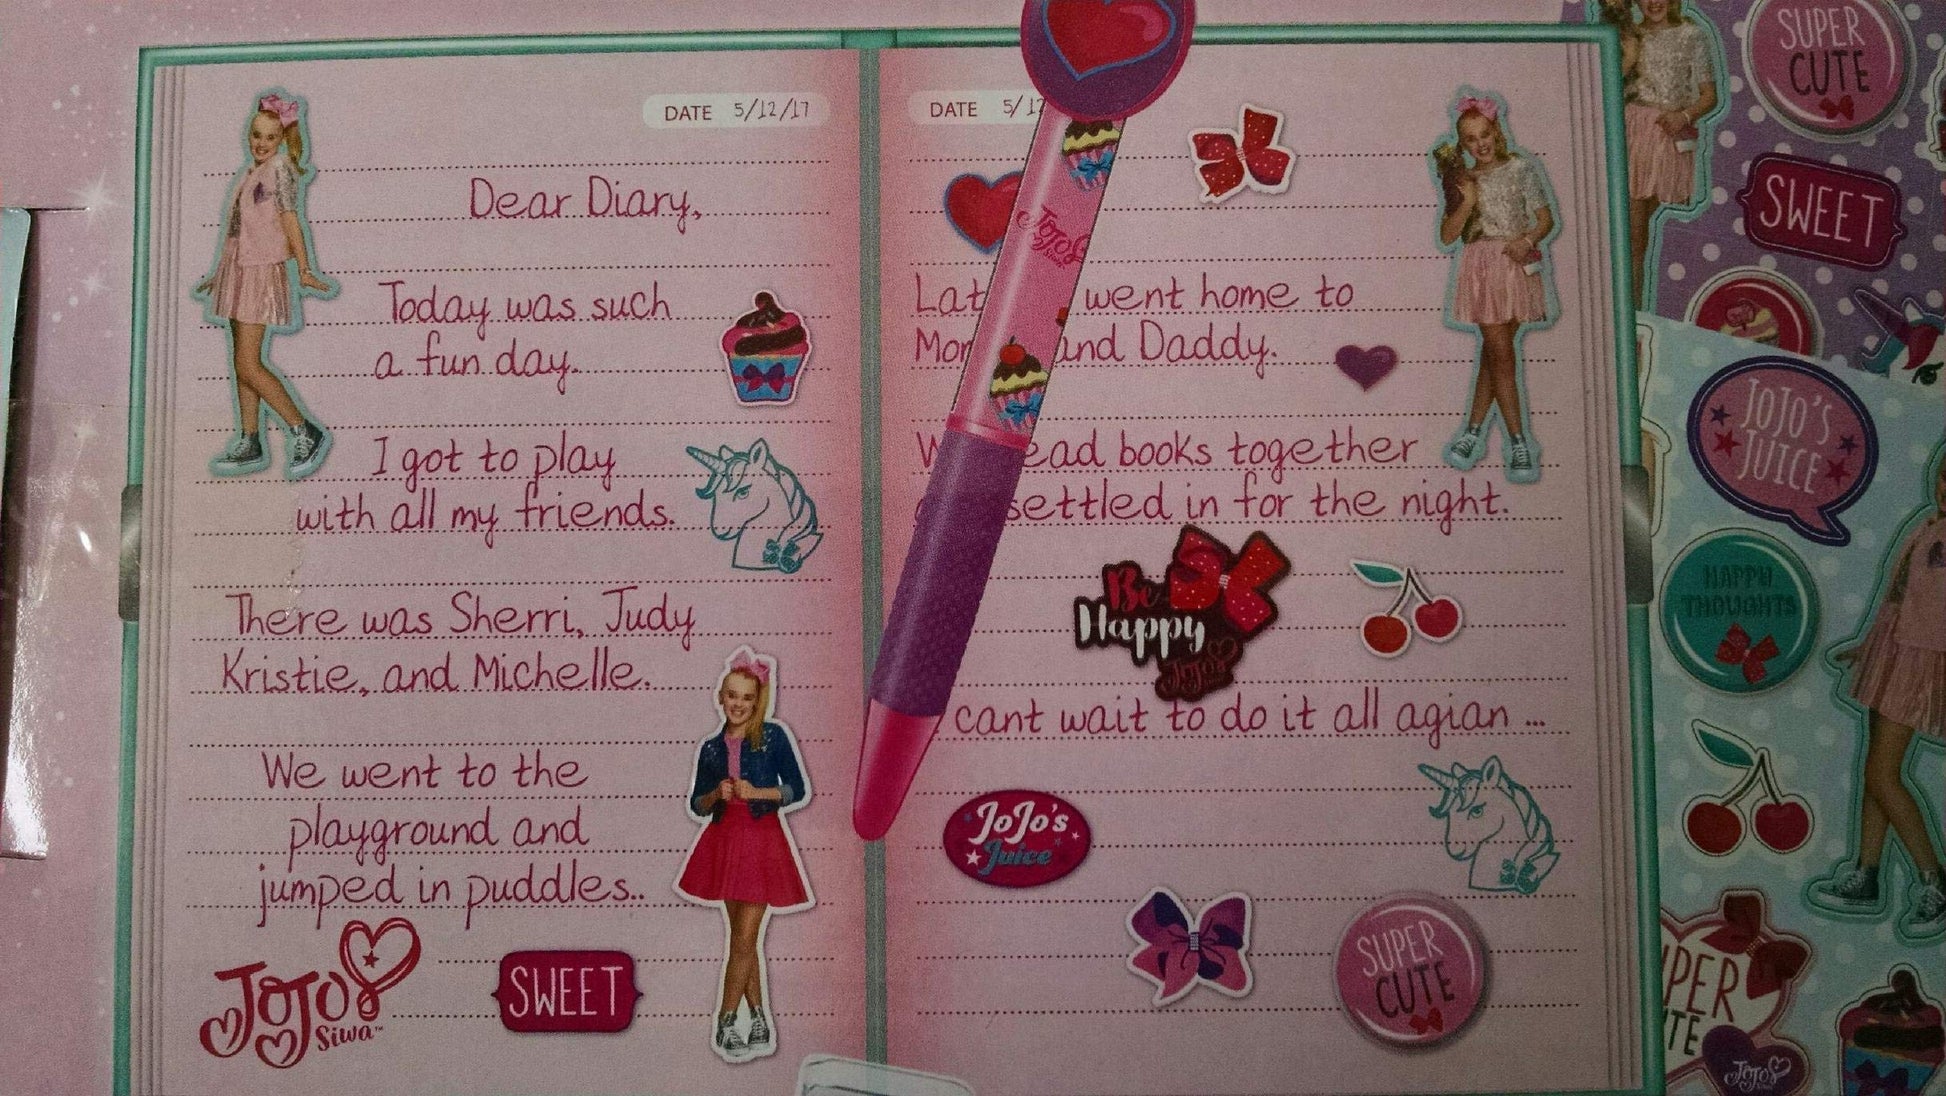 DATE 5/12/17
Dear Diary,
Today was such
a fun day.
I got to play
with all my friends.
There was Sherri, Judy
Kristie, and Michelle.
We went to the
playground and
jumped in puddles..
JoJo
Siwa™
SWEET
DATE 5/12
JoJo
Siwa
Lat went home to
Mom and Daddy.
read books together
settled in for the night.
Be
Happy
JoJo
cant wait to do it all agian ...
JoJo's
Juice
SUPER
CUTE
SUPER
CUTE
SWEET
JOJO'S
JUICE
HAPPY
THOUGHTS
JoJo
Siwa